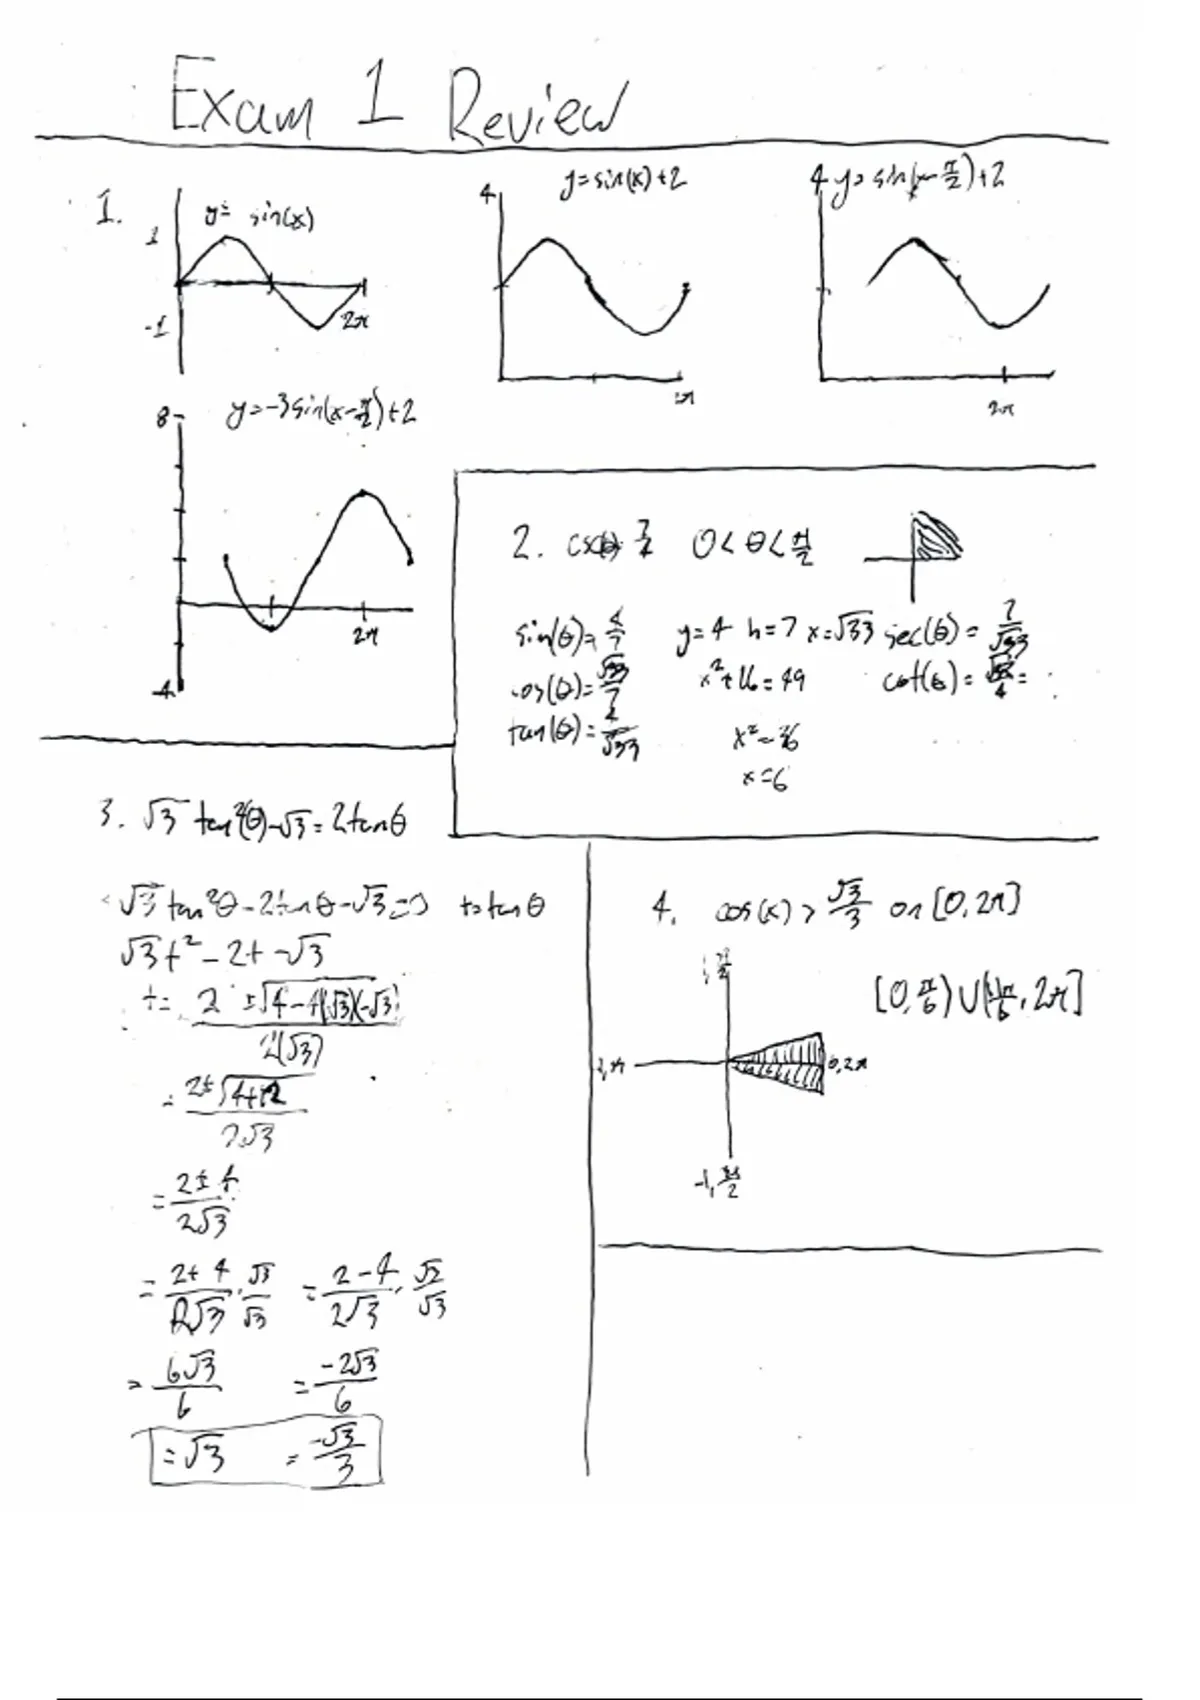 Exam 1 Review
1.
y = sin(x)
1
-1
2π
y=sin(x)+2
4
2π
4 y=sin(x-π/2)+2
2π
y=-3sin(x-π/2)+2
8
2π
-4
2. csc(θ) 7/4 0<θ<π/2
sin(θ)=4/7 y=4 h=7 x=√33 sec(θ)=7/√33
cos(θ)=√33/7 x²+16=49 cot(θ)=√33/4=
tan(θ)=4/√33 x²=36
x=6
3. √3 tan²(θ)-√3=2tanθ
√3 tan²θ-2tanθ-√3=0 t=tanθ
√3t²-2t-√3
t= 2±√4-4(√3)(-√3)/2(√3)
= 2±√4+12/2√3
= 2±4/2√3
= 2+4/2√3·√3/√3 = 2-4/2√3·√2/√3
= 6√3/6 = -2√3/6
=√3 = -√3/3
4. cos(x)>√3/3 on [0,2π]
[0,π/6)∪(11π/6,2π]
0,2π